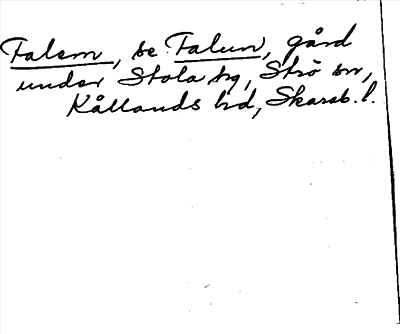 Falem, se Falun, gård
under Stola sg, Strö sn,
Kållands hd, Skarab. l.